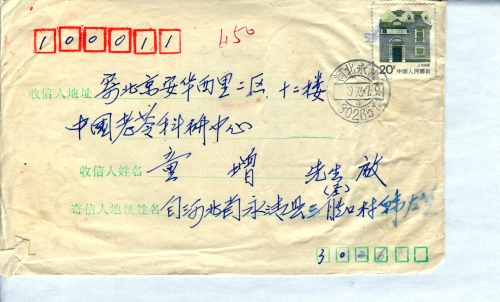 100011
450
20分 中国人民邮政
收信人地址 寄北京安华西里二区.十二楼
中国老令科研中心
收信人姓名 童增 先生 放
寄信人地址姓名 自河北省永清县三 口村 韩